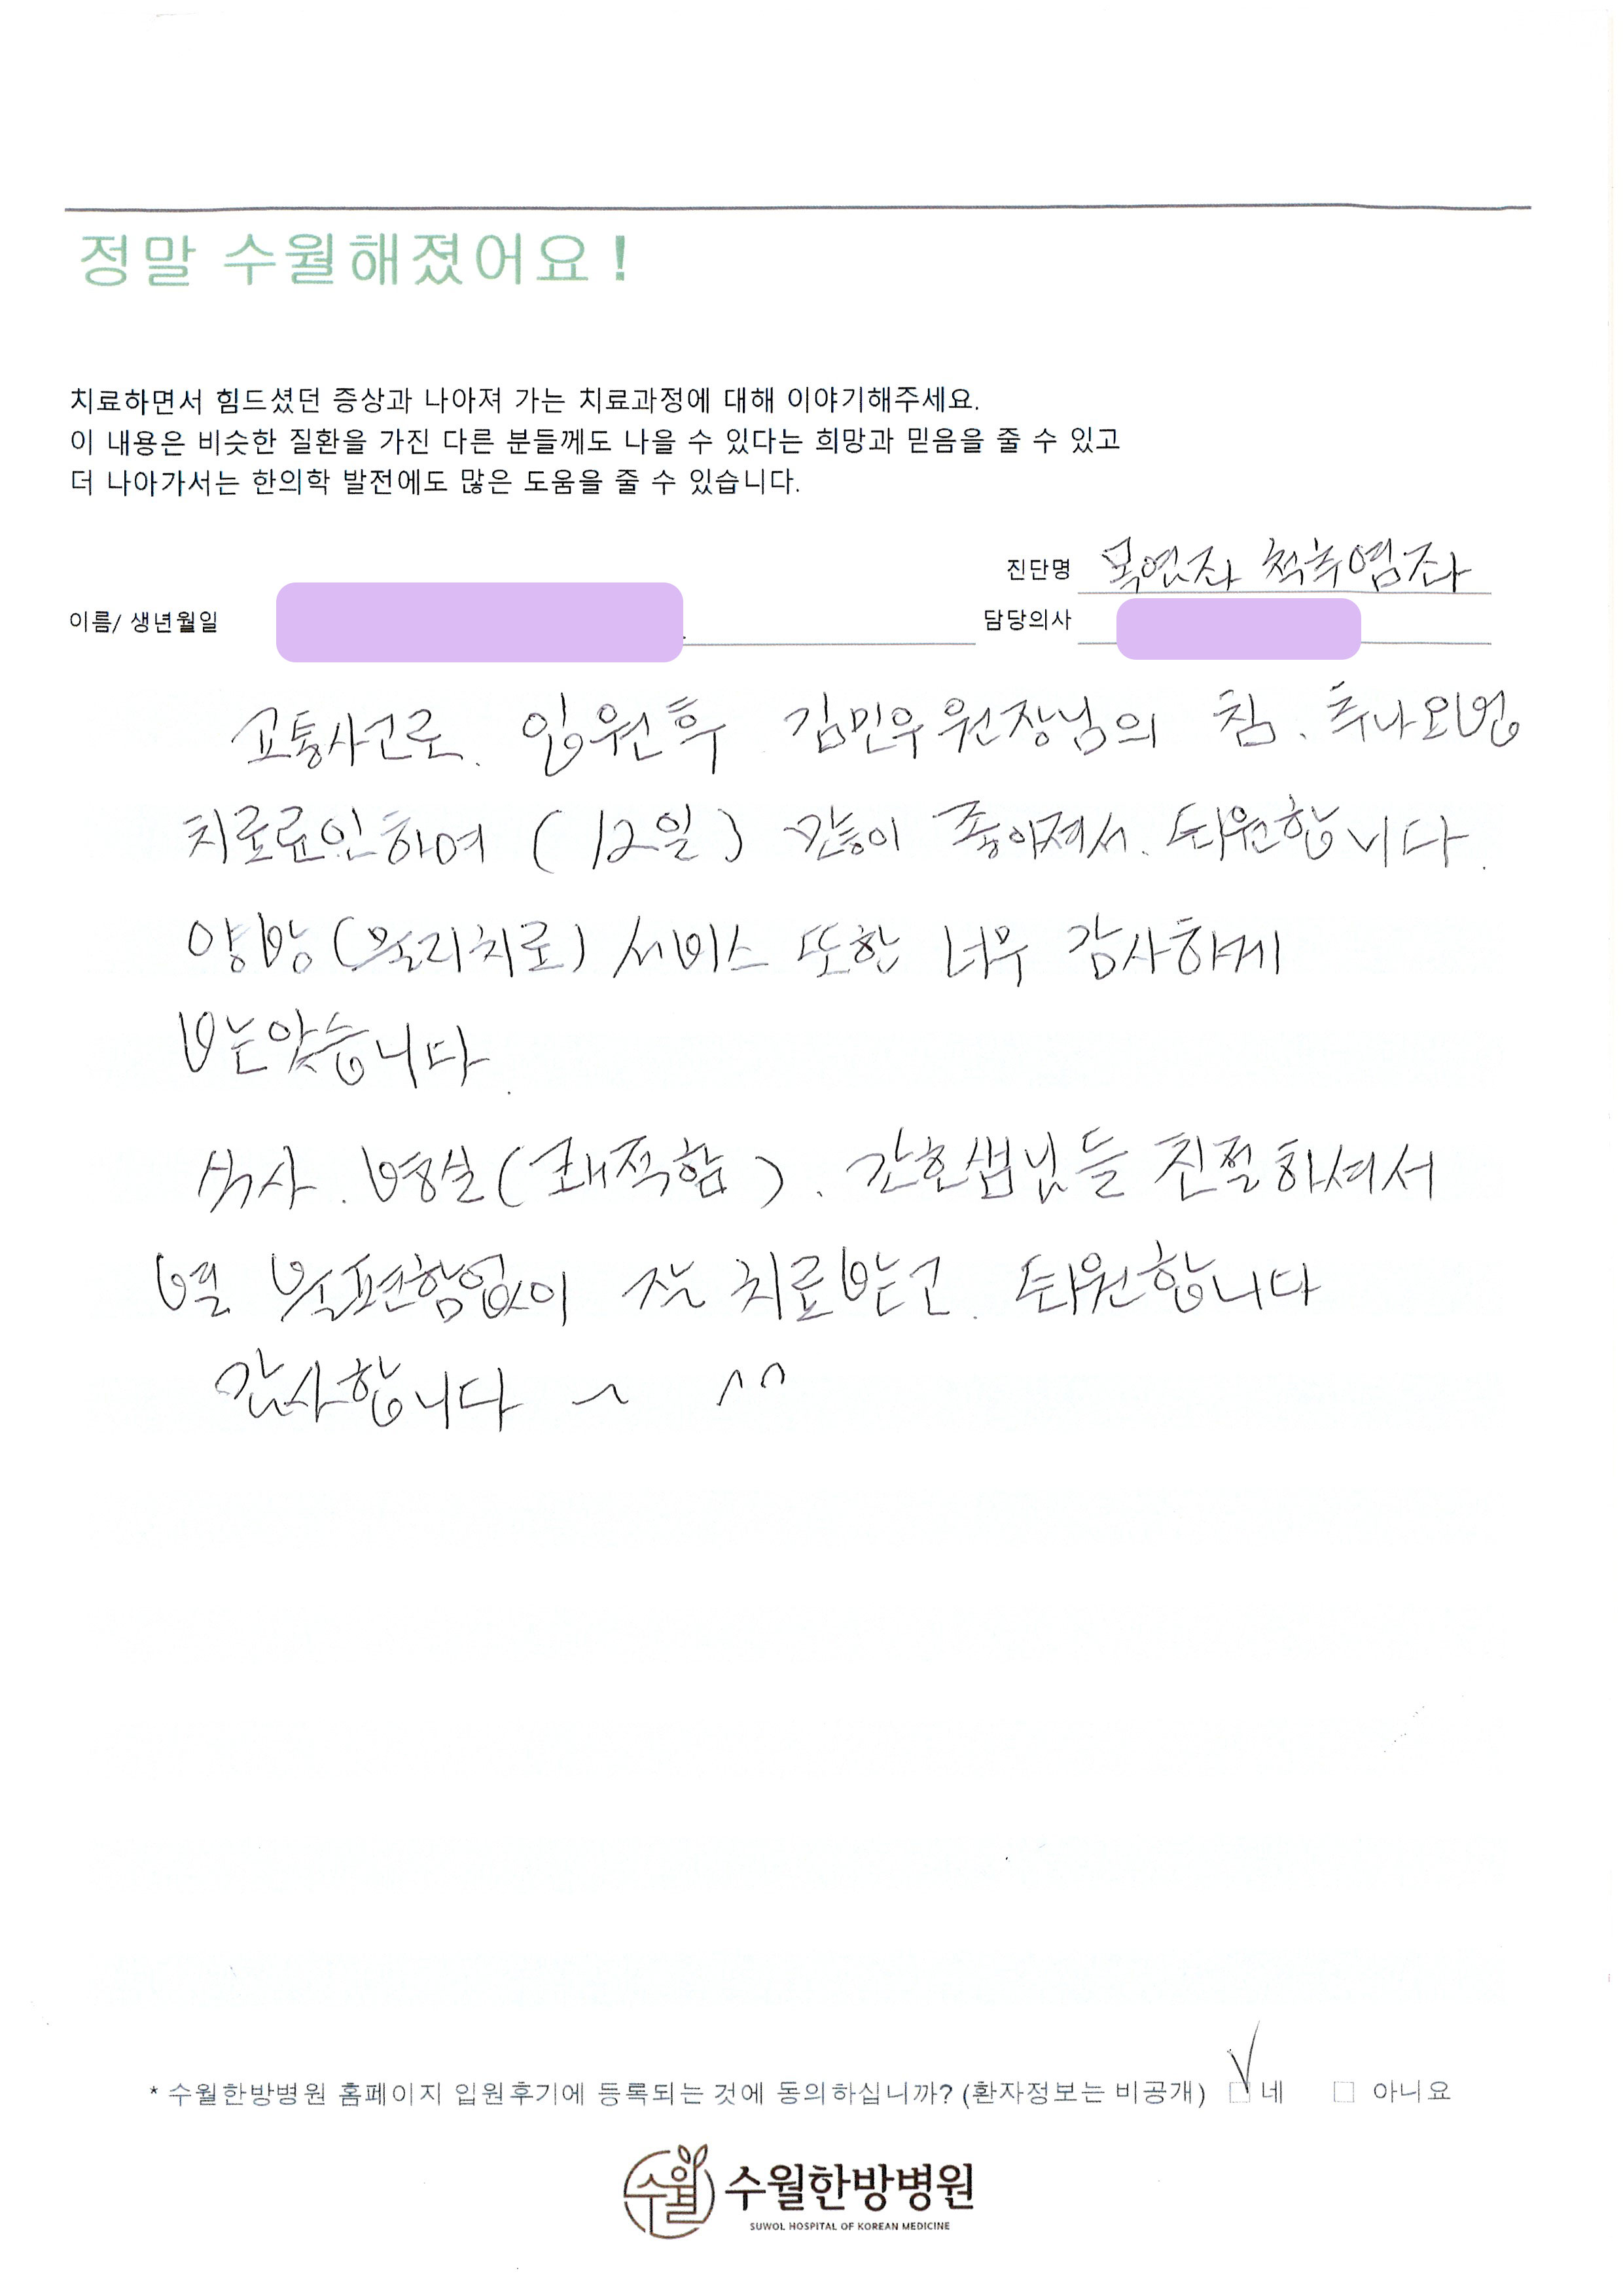 정말 수월해졌어요!
치료하면서 힘드셨던 증상과 나아져 가는 치료과정에 대해 이야기해주세요.
이 내용은 비슷한 질환을 가진 다른 분들께도 나을 수 있다는 희망과 믿음을 줄 수 있고
더 나아가서는 한의학 발전에도 많은 도움을 줄 수 있습니다.
진단명 목염좌 척추염좌
이름/ 생년월일 담당의사
교통사고로. 입원후 김민우 원장님의 침. 추나요법
치료로인하여 (12일) 많이 좋아져서. 퇴원합니다.
양방(물리치료) 서비스 또한 너무 감사하게
받았습니다.
식사. 병실(쾌적함). 간호샘님들 친절하셔서
별 불편함없이 잘 치료받고. 퇴원합니다
감사합니다 ~ ^^
* 수월한방병원 홈페이지 입원후기에 등록되는 것에 동의하십니까? (환자정보는 비공개) 네 아니요
수월 수월한방병원
SUWOL HOSPITAL OF KOREAN MEDICINE